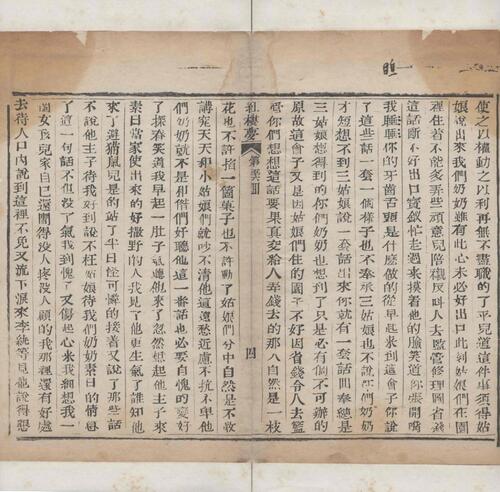 使之以權動之以利再無不盡職的了平兒道這件事須得姑
娘說出來我們奶奶雖有此心未必好出口此刻姑娘們在園
裡住着不能多弄些頑意兒陪襯反叫人去監管修理圖省錢
這話斷不好出口寶釵忙走過來摸着他的臉笑道你張開嘴
我瞧瞧你的牙齒舌頭是什麼做的從早起來到這會子你說
了這些話一套一個樣子也不奉承三姑娘也不說你們奶奶
才短想不到三姑娘說一套話出來你就有一套話回奉總是
三姑娘想得到的你們奶奶也想到了只是必有個不可辦的
原故這會子又是因姑娘們住的園子不好因省錢令人去監
管你們想想這話要果真交給人弄錢去的那人自然是一枝
紅樓夢 第 四
花也不許掐一個菓子也不許動了姑娘們分中自然是不敢
講究天天和小姑娘們就吵不清他這遠愁近慮不抗不卑他
們奶奶就不是和偺們好聽他這一番話也必要自愧的變好
了探春笑道我早起一肚子氣聽他來了忽然想起他主子來
素日當家使出來的好撒野的人我見了他更生氣了誰知他
來了避猫鼠兒是的站了半日怪可憐的接著又說了那些話
不說他主子待我好到說不枉姑娘待我們奶奶素日的情意
了這一句話不但沒了氣我到愧了又傷起心來我細想我一
個女孩兒家自己還鬧得沒人疼沒人顧的我那裡還有好處
去待人口內說到這裡不免又流下淚來李紈等見他說得懇